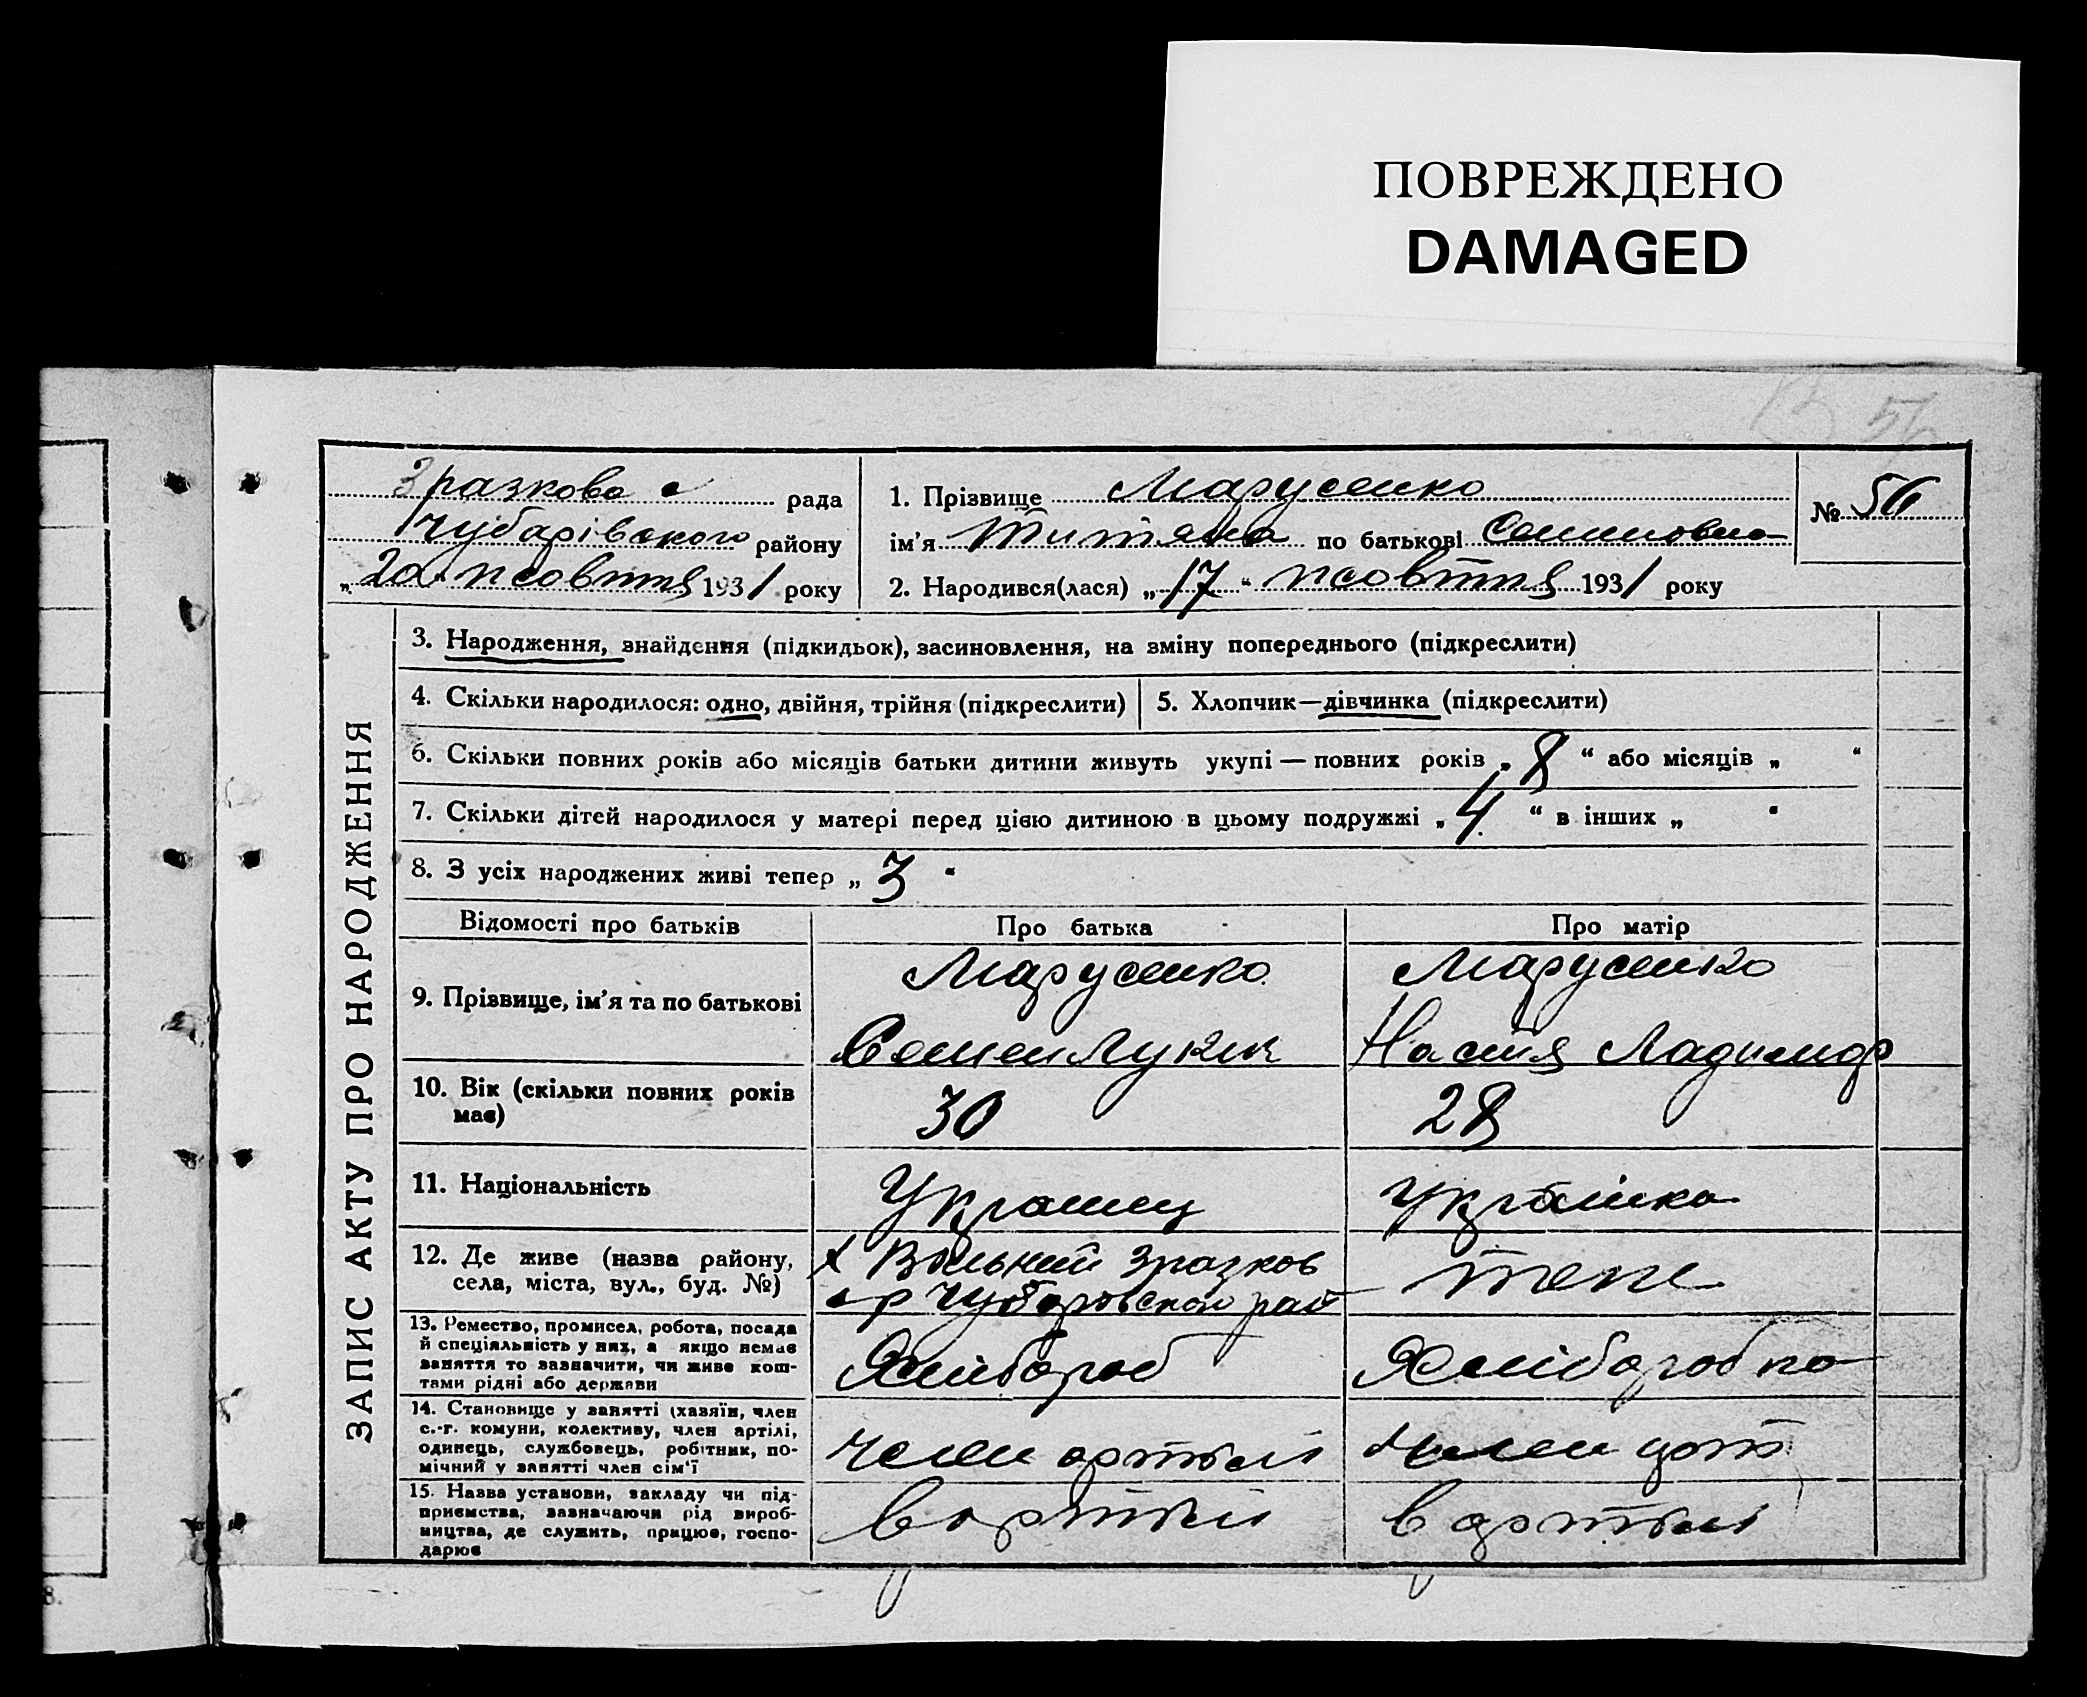 ПОВРЕЖДЕНО
DAMAGED
56
Зразкова с рада
Чубарівского району
„20 жовтня 1931 року
1. Прізвище Марусенко
ім'я Титяна по батькові Семиновна
2. Народився(лася) „17“ жовтня 1931 року
№ 56
ЗАПИС АКТУ ПРО НАРОДЖЕННЯ
3. Народження, знайдення (підкидьок), засиновлення, на зміну попереднього (підкреслити)
4. Скільки народилося: одно, двійня, трійня (підкреслити)
5. Хлопчик—дівчинка (підкреслити)
6. Скільки повних років або місяців батьки дитини живуть укупі — повних років „8“ або місяців „ “
7. Скільки дітей народилося у матері перед цією дитиною в цьому подружжі „4“ в інших „ “
8. З усіх народжених живі тепер „3“
Відомості про батьків
Про батька
Про матір
9. Прізвище, ім'я та по батькові
Марусенко
Семен Лукик
Марусенко
Настя Ладимир
10. Вік (скільки повних років
має)
30
28
11. Національність
Украинец
Українка
12. Де живе (назва району,
села, міста, вул., буд. №)
х Вольний Зразков
с р Чубаровской рай
теж
13. Ремество, промисел, робота, посада
й спеціяльність у них, а якщо немає
заняття то зазначити, чи живе кош-
тами рідні або держави
Хлібороб
Хліборобка
14. Становище у занятті (хазяїн, член
с.-г. комуни, колективу, член артілі,
одинець, службовець, робітник, по-
мічний у занятті член сім'ї
член артылі
член арт
15. Назва установи, закладу чи під-
приємства, зазначаючи рід вироб-
ництва, де служить, працює, госпо-
дарює
в артилі
в артылі
8.